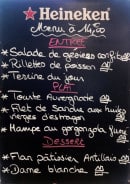 ★ Heineken
Menu à 14,50
ENTREE
* Salade de gésiers confits
* Rillettes de poisson
* Terrine du jour
PLAT
* Tourte Auvergnate
* Filet de Sandre aux huiles
vierges d'estragon
* Hampe au gorgonzola
Dessert
* Flan pâtissier Antillais
* Dame blanche